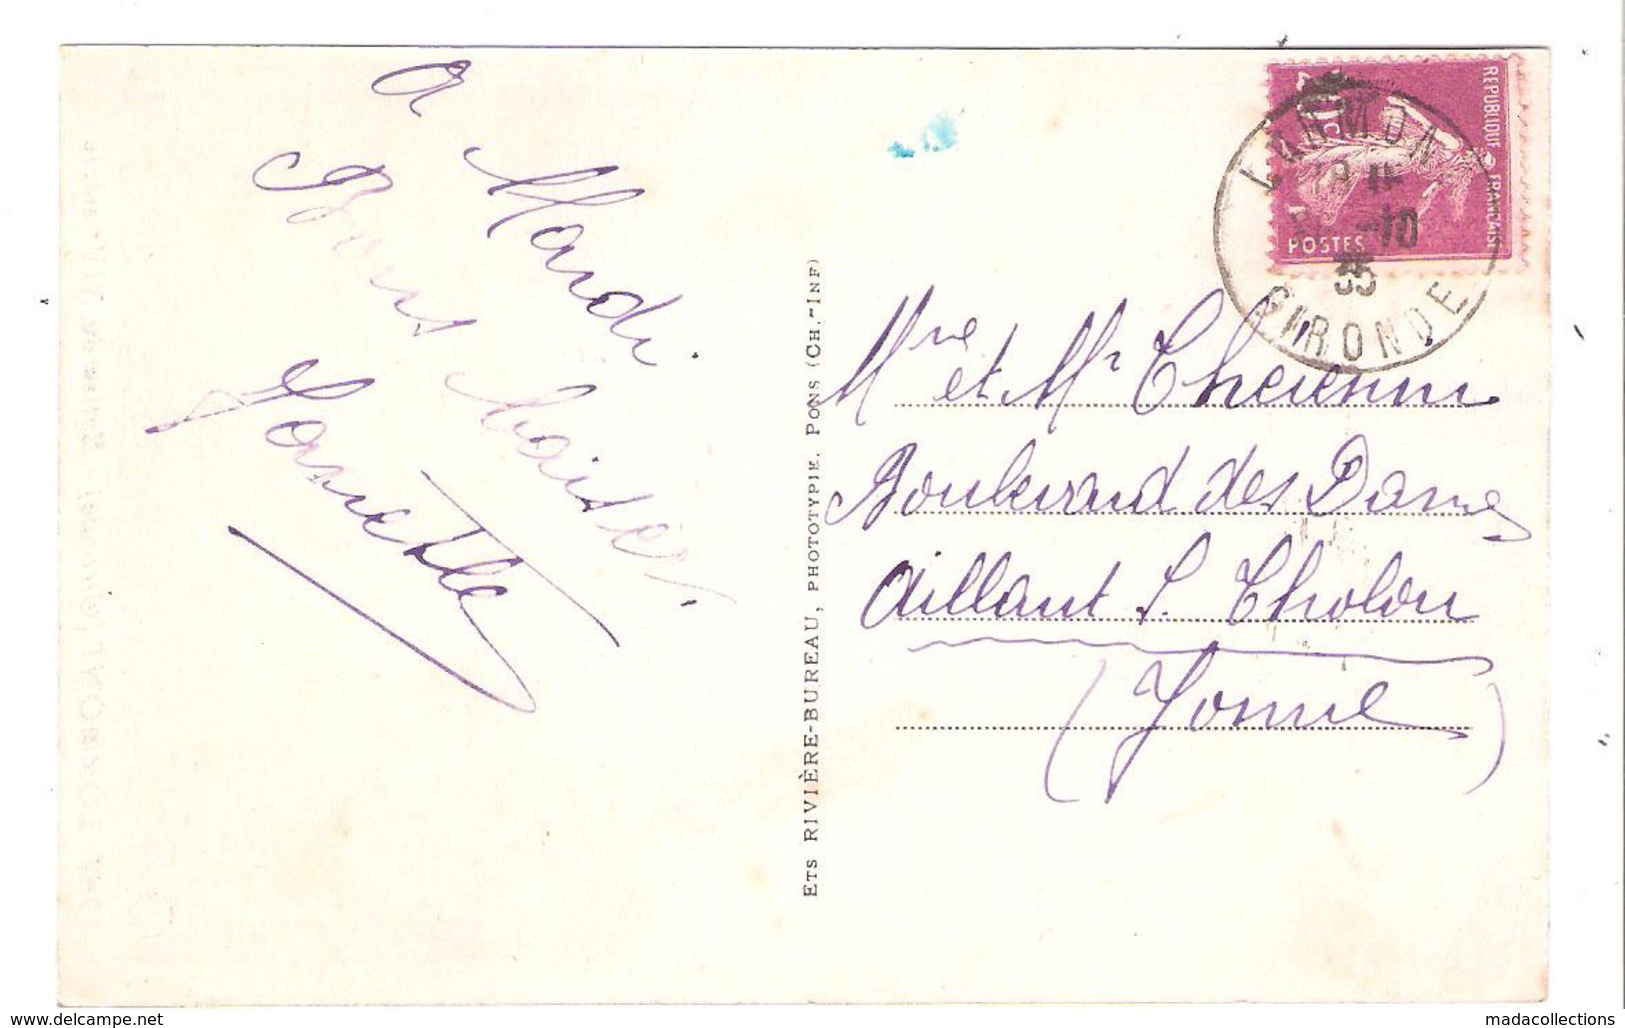 a Mardi
Bons baisers.
Janette
ETS RIVIÈRE-BUREAU, PHOTOTYPIE, PONS (CH.-INF)
RÉPUBLIQUE FRANÇAISE
POSTES
GIRONDE
35
Mme et Mr
Boulevard des Dames
Aillant s. Tholon
(Yonne)
www.delcampe.net
madacollections